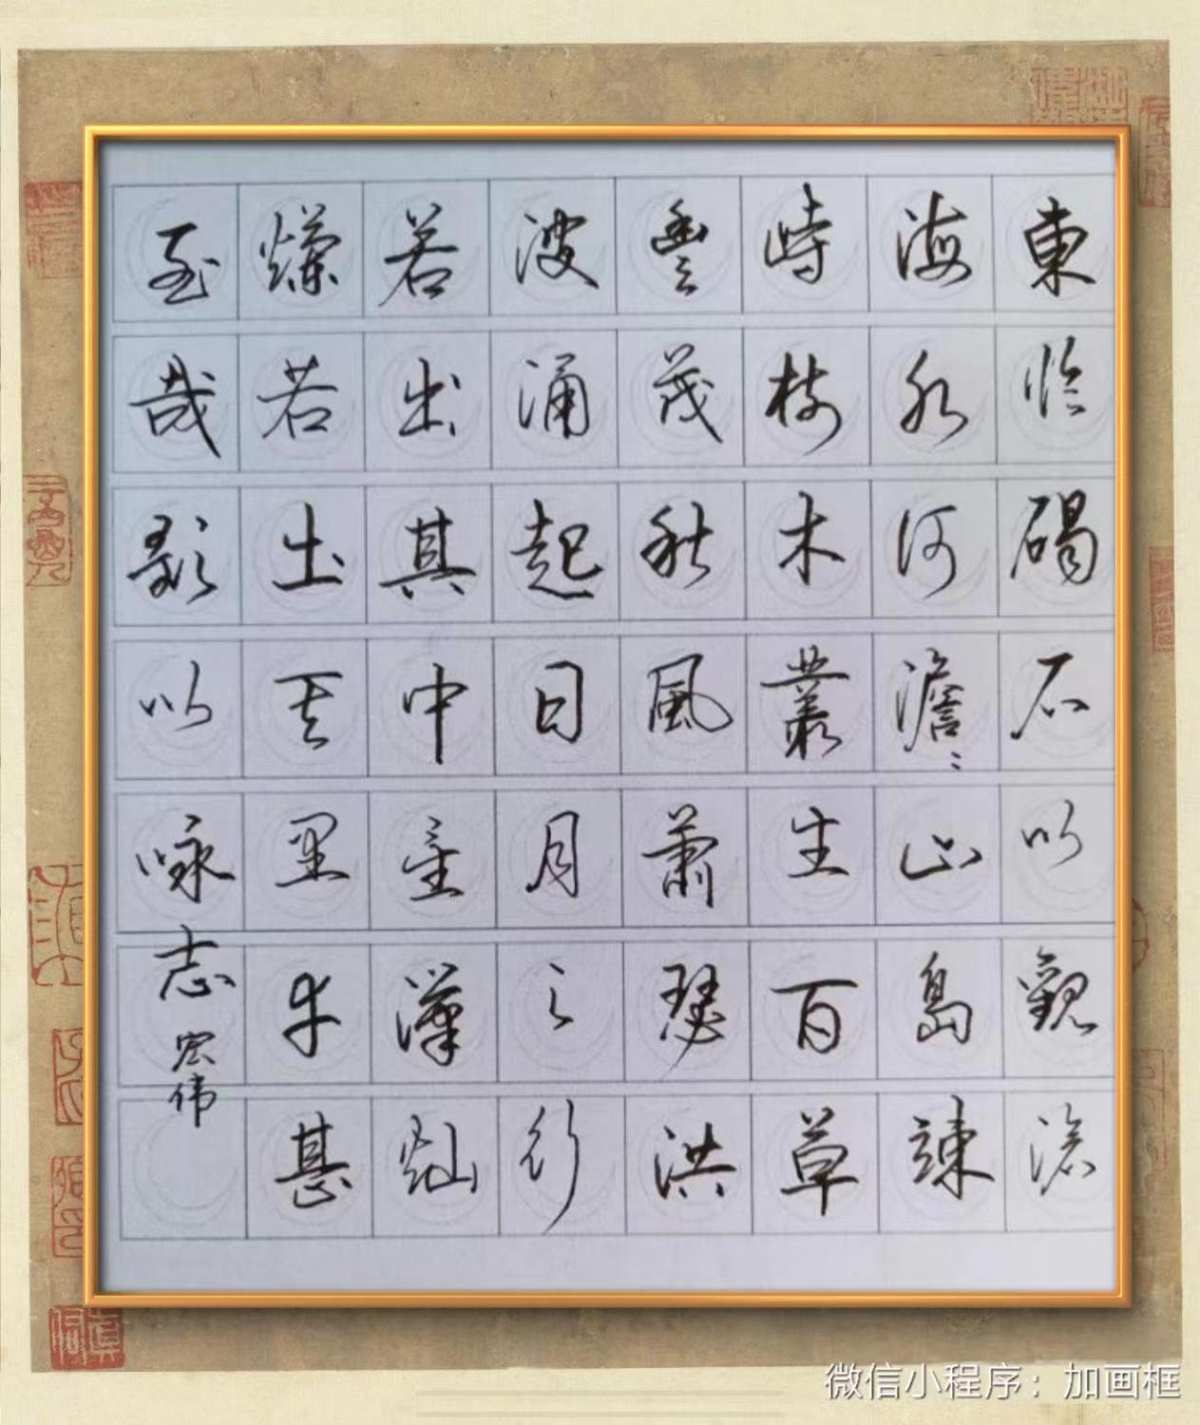 東临碣石以觀滄
海水何澹〻山島竦
峙树木叢生百草
豐茂秋風蕭瑟洪
波涌起日月之行
若出其中星漢灿
爛若出其里幸甚
至哉歌以咏志
宏伟
微信小程序：加画框